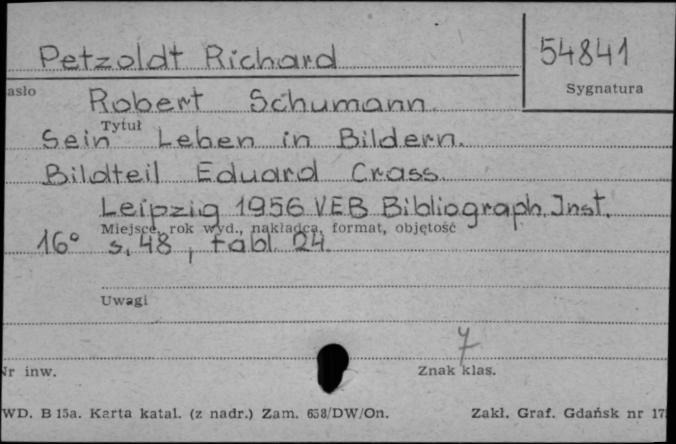 Petzoldt Richard
54841
Sygnatura
asło
Robert Schumann.
Tytuł
Sein Leben in Bildern.
Bildteil Eduard Crass.
Leipzig 1956 VEB Bibliograph. Inst.
Miejsce, rok wyd., nakładca, format, objętość
16° s. 48, tabl. 24.
Uwagi
7
Nr inw.
Znak klas.
WD. B 15a. Karta katal. (z nadr.) Zam. 658/DW/On.
Zakł. Graf. Gdańsk nr 17